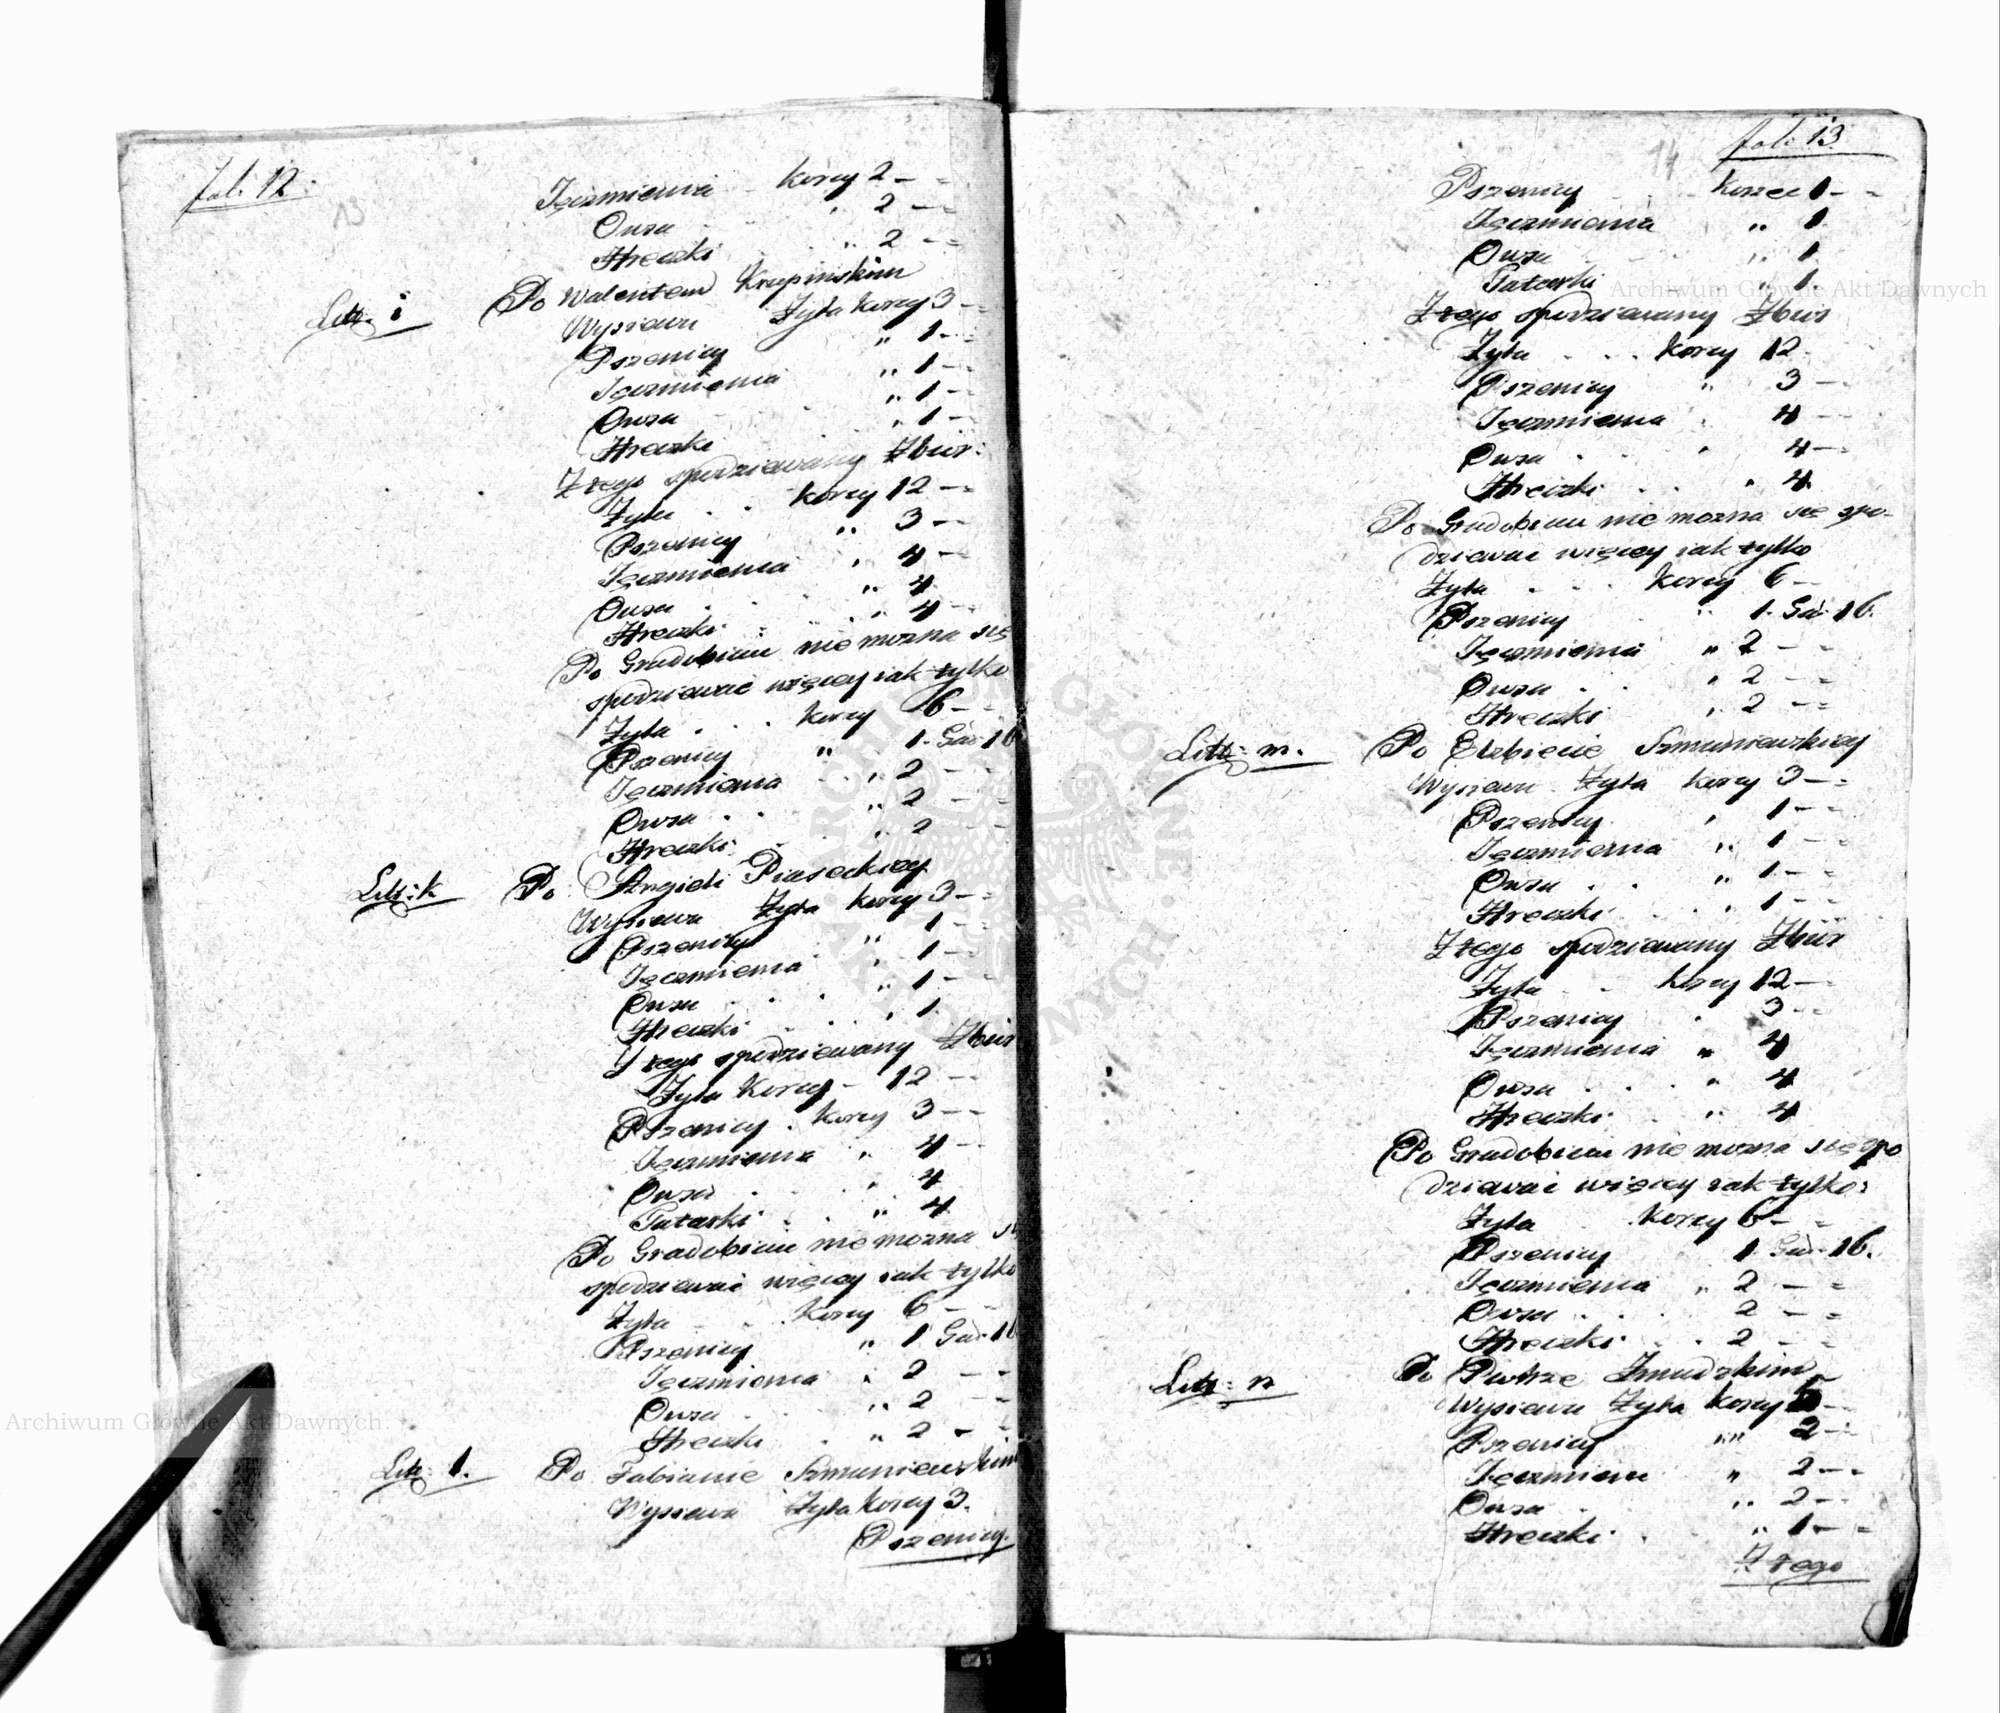 fol: 12:
13
Jęczmienia - korcy 2 - -
Owsa - , 2 - -
Hreczki . ,, 2 - -
Litt. i Po Walentem Krupinskim
Wysiewu Zyta korcy 3 -
Pszenicy ,, 1 - -
Jęczmienia ,, 1 -
Owsa - ,, 1 -
Hreczki . , 1 -
Z tego spodziewany Zbiór:
Zyta . . korcy 12 - -
Pszenicy ,, 3 - -
Jęczmienia , 4 -
Owsa . ,, 4
Hreczki . ,, 4 -
Po Gradobiciu nie mozna się
spodziewać więcey iak tylko
Zyta . . . korcy 6 - -
Pszenicy ,, 1. Gar 16
Jęczmienia . , 2 - -
Owsa . . ,, 2 - -
Hreczki . . , 2 - -
Litt: k Po Piaseckiey
Wysiewu Zyta korcy 3 - -
Pszenicy ,, 1 - -
Jęczmienia . , 1 - -
Owsa . . ,, 1 - -
Hreczki . . , 1.
Z tego spodziewany Zbiór
Zyta Korcy - 12 - -
Pszenicy . korcy 3 - -
Jęczmienia ,, 4 - -
Owsa . . , 4
Tatarki . ,, 4
Po Gradobiciu nie mozna
spodziewać więcey iak tylko
Zyta . korcy 6 - -
Pszenicy ,, 1 Gar 16
Jęczmienia . 2 - -
Owsa . ,, 2 - -
Hreczki . ,, 2 - -
Litt: l. Po Fabianie Szmuniewskim
Wysiewu Zyta korcy 3.
Pszenicy.
14
fol: 13
Pszenicy . korzec 1 - -
Jęczmienia ,, 1
Owsa ,, 1
Tatarki 1
Z tego spodziewany Zbiór
Zyta . . . korcy 12
Pszenicy ,, 3 -
Jęczmienia 4 - -
Owsa . . 4 - -
Hreczki . . . 4.
Po Gradobiciu nie mozna się spo-
dziewać więcey iak tylko
Zyta . . . korcy 6 -
Pszenicy ,, 1. Gar 16.
Jęczmienia ,, 2 - -
Owsa . . , 2 - -
Hreczki , 2 - -
Litt: m. Po Elzbiecie Szmuniewskiey
Wysiewu Zyta korcy 3 - -
Pszenicy , 1 - -
Jęczmienia ,, 1 - -
Owsa . . ,, 1 - -
Hreczki . . , 1 - -
Z tego spodziewany Zbiór
Zyta - . korcy 12 - -
Pszenicy . 3 - -
Jęczmienia ,, 4
Owsa . . . ,, 4
Hreczki . . ,, 4
Po Gradobiciu nie mozna się spo
dziewać więcey iak tylko:
Zyta . korcy 6 - -
Pszenicy 1. Gar. 16.
Jęczmienia , 2 - -
Owsa . . . 2 - -
Hreczki . . . 2 - -
Litt: n Po Piotrze Zmudzkim
Wysiewu Zyta korcy - -
Pszenicy ,,,, 2 - -
Jęczmieniu ,, 2 - -
Owsa . ,, 2 - -
Hreczki . . ,, 1 - -
Z tego
Archiwum Główne Akt Dawnych
Archiwum Główne Akt Dawnych
ARCHIWUM GŁÓWNE AKT DAWNYCH